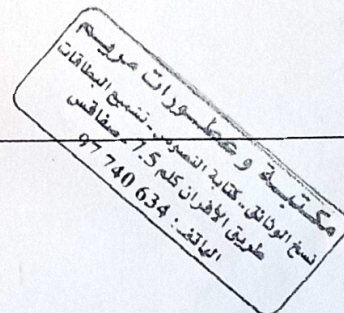 مكتبة وعطورات مريم
نسخ الوثائق.. كتابة النصوص.. تشميع البطاقات
طريق الأفران كلم 7.5 - صفاقس
الهاتف : 97 740 634